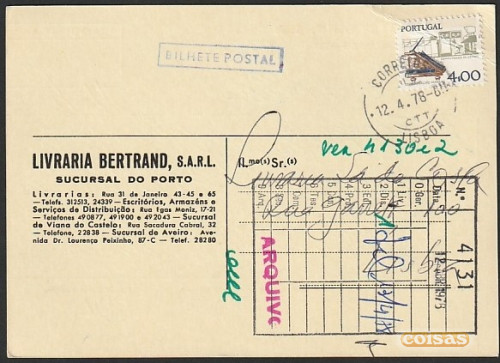 BILHETE POSTAL
PORTUGAL
4.00
CORREIOS
12.4.78
CTT
LISBOA
ver 4130 e 2
LIVRARIA BERTRAND, S.A.R.L.
SUCURSAL DO PORTO
Livrarias: Rua 31 de Janeiro 43-45 e 65
— Telefs. 312513, 24339 — Escritórios, Armazéns e
Serviços de Distribuição: Rua Fgos Menia, 17-21
— Telefones 490877, 491900 e 492043 — Sucursal
de Viana do Castelo: Rua Sacadura Cabral, 32
— Telefone, 22838 — Sucursal de Aveiro: Ave-
nida Dr. Lourenço Peixinho, 87-C — Telef. 28280
Il.mo(s) Sr.(s)
Livraria Sá da Costa
Rua Garrett 100
Lisboa
N.º 4131
Data
ARQUIVO
coisas